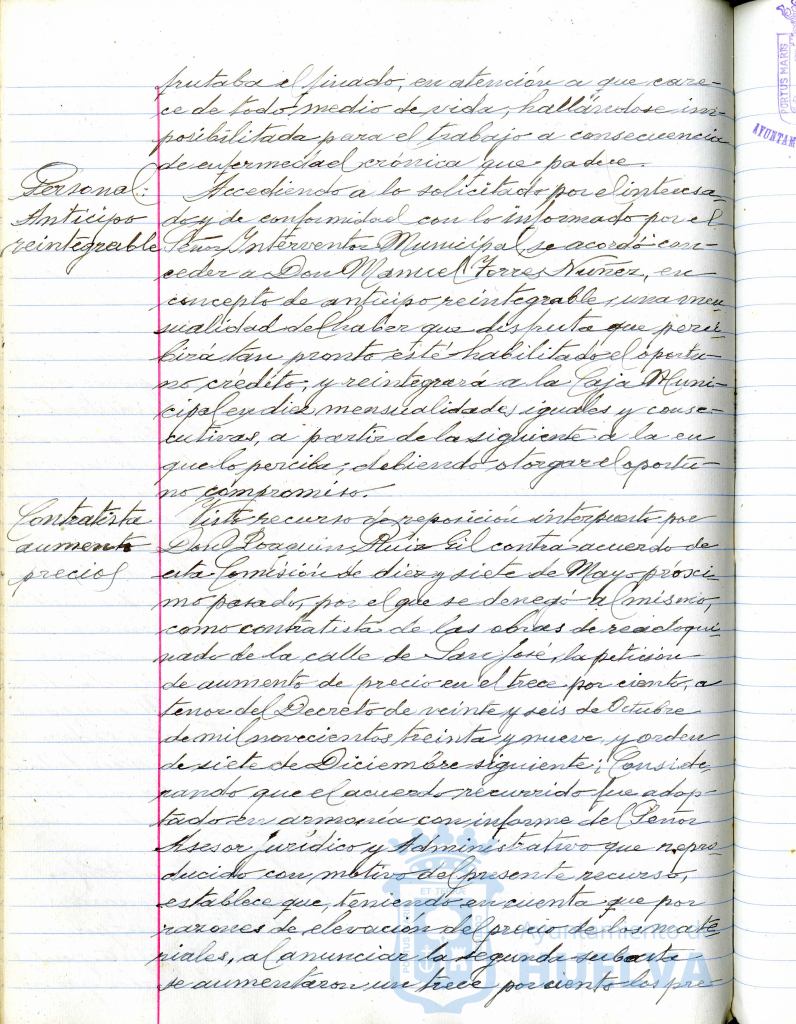 frutaba el finado, en atención a que care-
ce de todo medio de vida, hallándose im-
posibilitada para el trabajo a consecuencia
de enfermedad crónica que padece.
Personal:
Anticipo
reintegrable
Accediendo a lo solicitado por el interesa-
do y de conformidad con lo informado por el
Señor Interventor Municipal se acordó con-
ceder a Don Manuel Torres Nuñez, en
concepto de anticipo reintegrable, una men-
sualidad del haber que disfruta que perci-
birá tan pronto esté habilitado el oportu-
no crédito, y reintegrará a la Caja Muni-
cipal en diez mensualidades iguales y conse-
cutivas, a partir de la siguiente a la en
que lo perciba; debiendo otorgar el oportu-
no compromiso.
Contratista
aumento
precios
Visto recurso de reposición interpuesto por
Don Joaquin Ruiz Gil contra acuerdo de
esta Comisión de diez y siete de Mayo próxi-
mo pasado, por el que se denegó al mismo,
como contratista de las obras de readoqui-
nado de la calle de San José, la petición
de aumento de precio en el trece por ciento, a
tenor del Decreto de veinte y seis de Octubre
de mil novecientos treinta y nueve y orden
de siete de Diciembre siguiente; Conside-
rando que el acuerdo recurrido fue adop-
tado en armonía con informe del Señor
Asesor Jurídico y Administrativo que repro-
ducido con motivo del presente recurso,
establece que, teniendo en cuenta que por
razones de elevación del precio de los mate-
riales, al anunciar la segunda subasta
se aumentaron un trece por ciento los pre
PORTUS MARIS
AYUNTAM
Ayuntamiento de
HUELVA